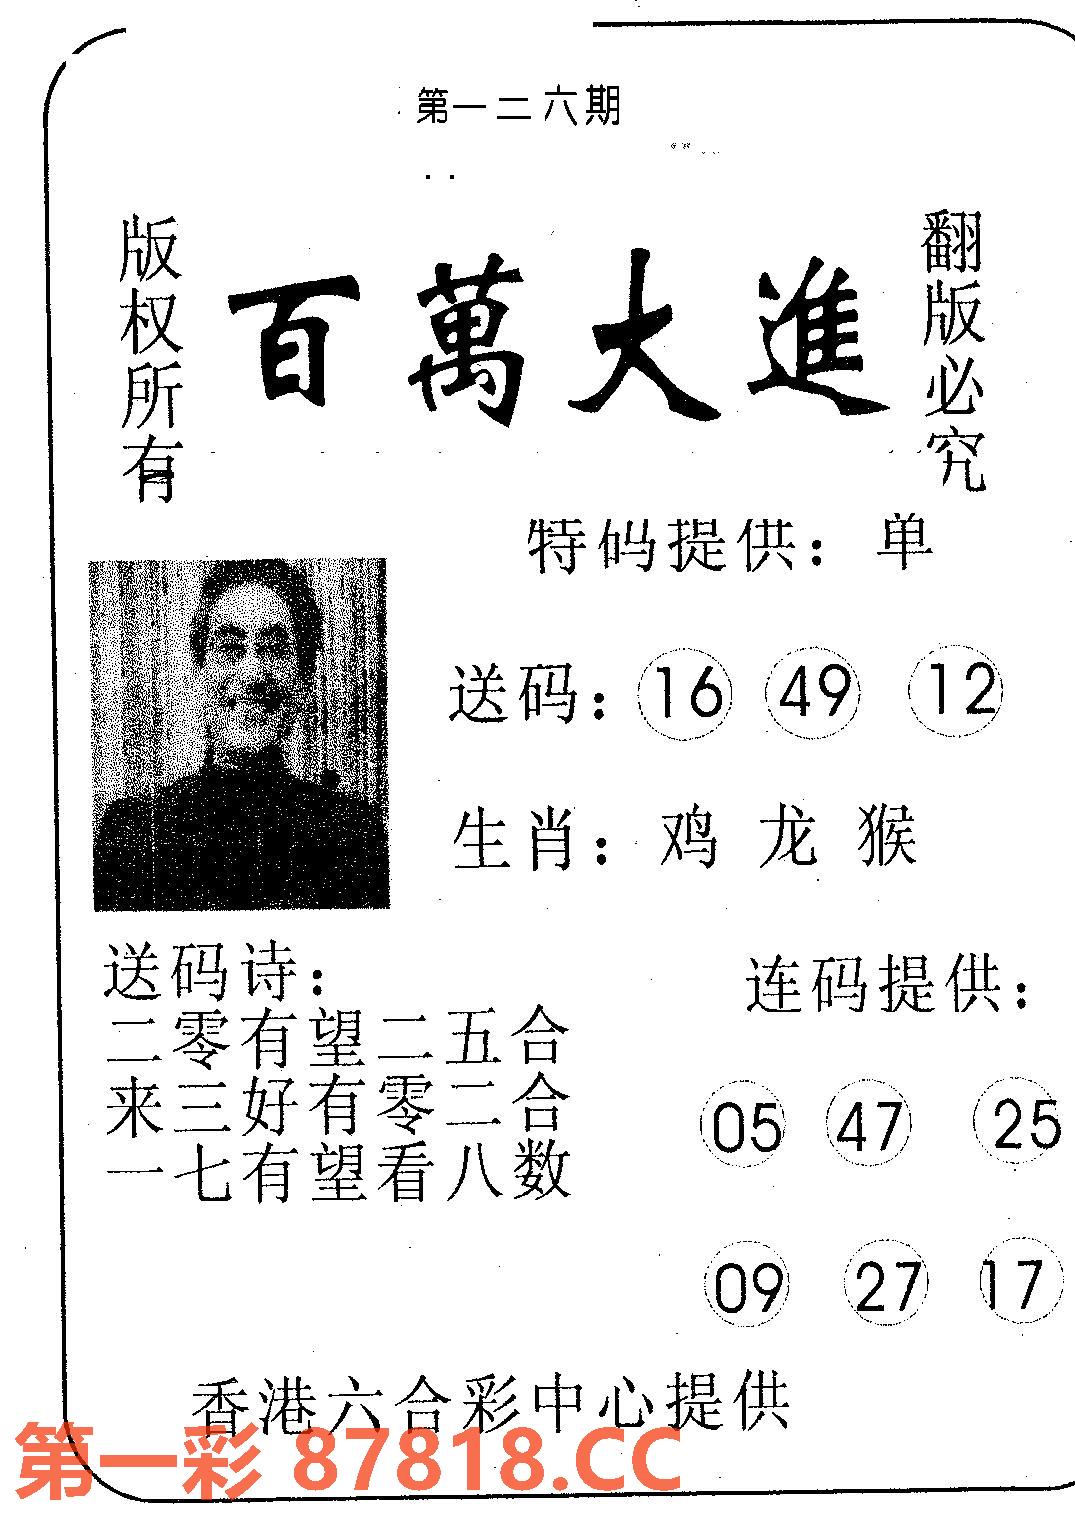 第一二六期
版权所有
百萬大進
翻版必究
特码提供：单
送码：16 49 12
生肖：鸡 龙 猴
送码诗：
二零有望二五合
来三好有零二合
一七有望看八数
连码提供：
05 47 25
09 27 17
香港六合彩中心提供
第一彩 87818.CC